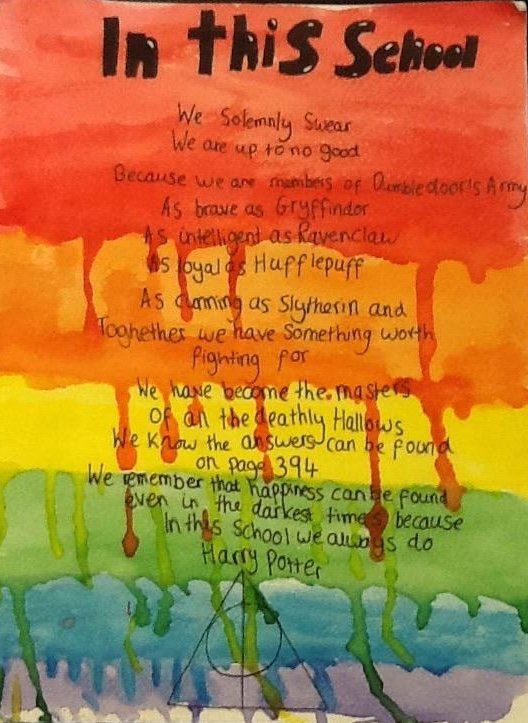 In this School
We Solemnly Swear
We are up to no good
Because we are members of Dumbledoor's Army
As brave as Gryffindor
As intelligent as Ravenclaw
As loyal as Hufflepuff
As cunning as Slytherin and
Toghether we have Something worth
fighting for
We have become the masters
Of all the deathly Hallows
We Know the answers can be found
on page 394
We remember that happiness can be found
even in the darkest times because
In this School we always do
Harry Potter